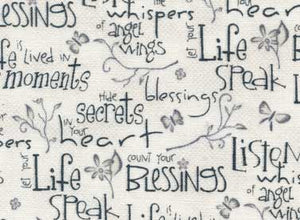 BLESSINGS
the whispers
of angel
wings
let your
Life
Speak
Life
is lived in
moments
Hide
secrets
in your
heart
blessings
let your
Life
Speak
COUNT YOUR
BLESSINGS
Listen
whispers
of angel
wings